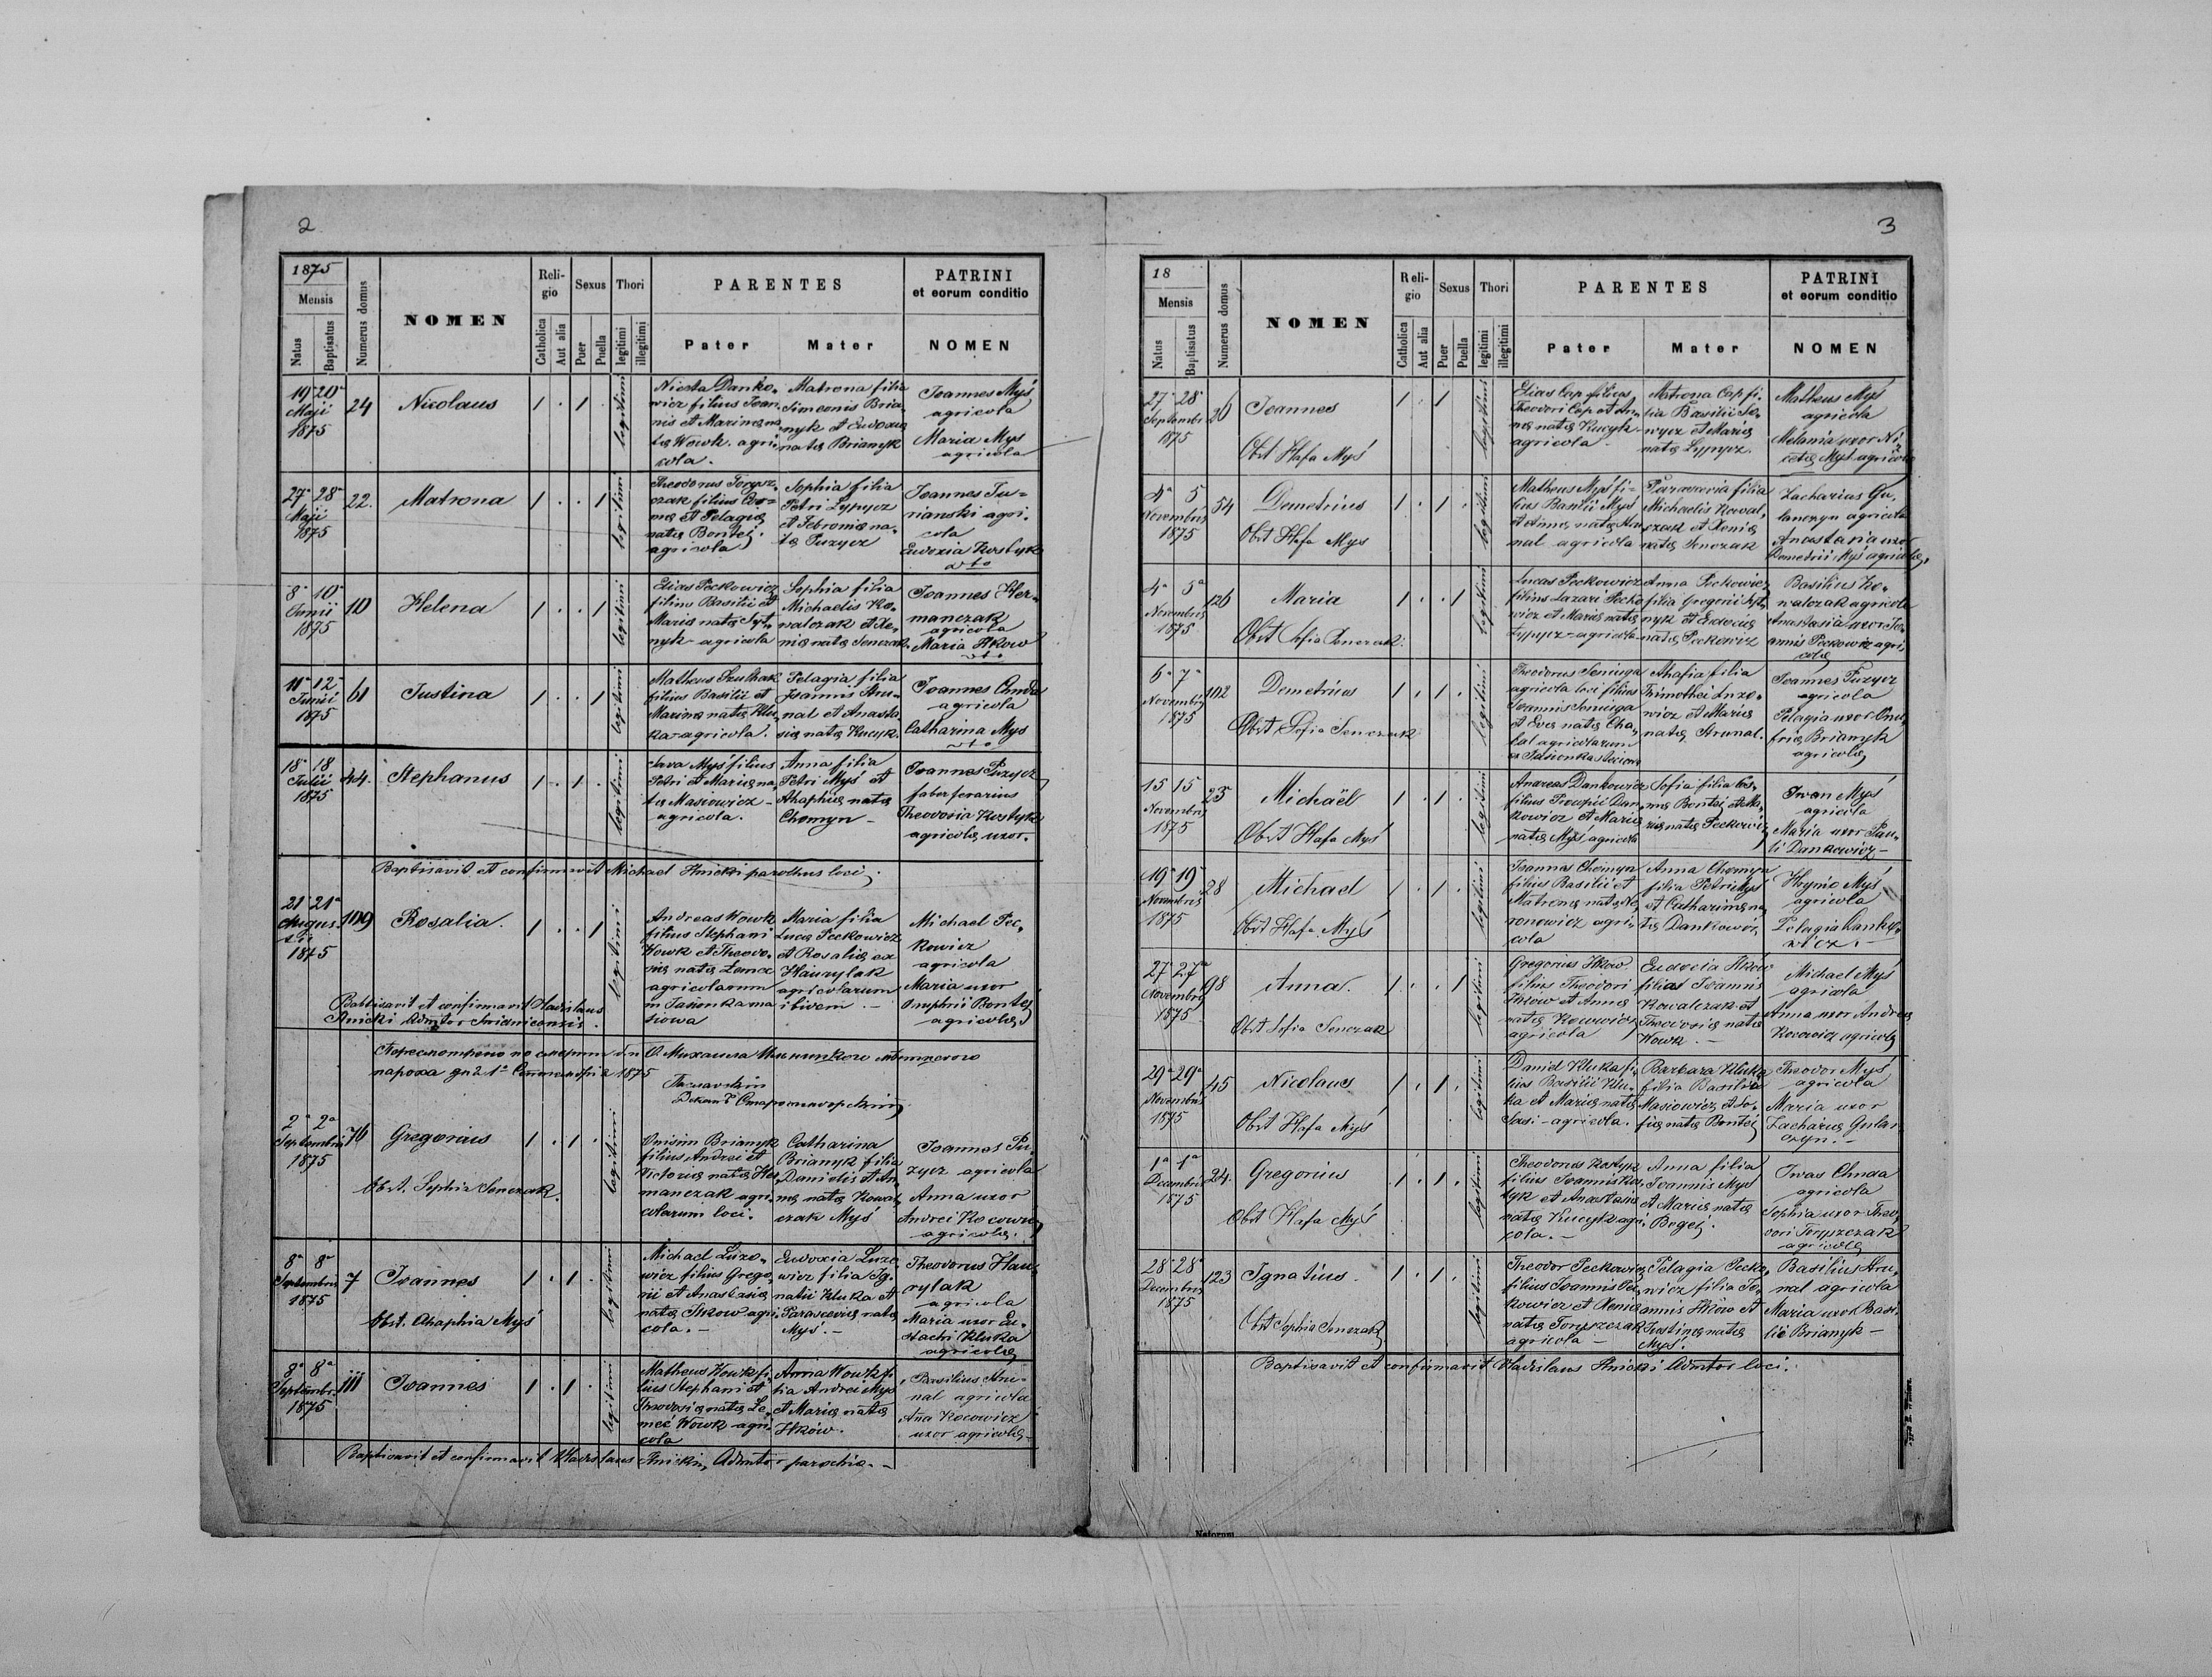 2
1875
Mensis
Natus
Baptisatus
Numerus domus
NOMEN
Reli-
gio
Catholica
Aut alia
Sexus
Puer
Puella
Thori
legitimi
illegitimi
PARENTES
Pater
Mater
PATRINI
et eorum conditio
NOMEN
19 20
Maji
1875
24
Nicolaus
1 . 1 .
legitimi
Niceta Danko-
wicz filius Ioan-
nis et Marinæ na-
tæ Wowk. agri-
cola.
Matrona filia
Simeonis Bria-
nyk et Eudoxiæ
natæ Brianyk
Joannes Myś
agricola
Maria Mys
agricola
27 28
Maji
1875
22.
Matrona
1 . . 1
legitimi
Theodorus Torysz-
czak filius
et Pelagiæ
natæ Bontej
agricola
Sophia filia
Petri Łypycz
et Febroniæ na-
tæ Puzycz
Joannes Tu-
rianski agri-
cola
Eudoxia Kostyk
8 10
Junii
1875
10
Helena
1 . . 1
legitimi
Elias Peckowicz
filius Basilii et
Mariæ natæ Syt-
nyk - agricola
Sophia filia
Michaelis Ko-
walczak et Xe-
niæ natæ Senczak
Joannes Her-
manczak
agricola
Maria Hkow
11 12
Junii
1875
61
Justina
1 . . 1
legitimi
Matheus Szulhak
filius Basilii et
Marinæ natæ Klu-
ka - agricola.
Pelagia filia
Joannis Hru-
nal et Anasta-
siæ natæ Kucyk.
Joannes Chuda
agricola
Catharina Mys
18 18
Julii
1875
44.
Stephanus
1 . 1 .
legitimi
Sava Myś filius
Petri et Mariæ na-
tæ Masiowicz -
agricola.
Anna filia
Petri Myś et
Ahaphiæ natæ
Chomyn -
Joannes Puzycz
faber ferarius
Theodosia Kostyk
agricolæ uxor.
Baptisavit et confirmavit Michael Ilnicki parochus loci.
21 21ª
Augus-
ti
1875
109
Rosalia.
1 . . 1
legitimi
Andreas Wowk
filius Stephani
Wowk et Theodo-
siæ natæ
agricolarum
in Jasionka ma-
siowa
Maria filia
Lucæ Peckowicz
et Rosaliæ ex
Hawrylak
agricolarum
ibidem. -
Michael Pec-
kowicz
agricola
Maria uxor
Onuphrii Bontej
agricolæ
Baptisavit et confirmavit Vladislaus
Ilnicki Admtor
парoха 1875
2ª 2ª
Septembris
1875
76
Gregorius
1 . 1 .
legitimi
Onisim Brianyk
filius Andrei et
Victoriæ natæ Her-
manczak agri-
colarum loci.
Catharina
Brianyk filia
Danielis et An-
næ natæ Kowal-
czak Myś
Joannes Pu-
zycz agricola
Anna uxor
Andrei
agricolæ.
Obst. Sophia Senczak.
8ª 8ª
Septembris
1875
7
Joannes
1 . 1 .
legitimi
Michael Luzo-
wicz filius Grego-
rii et Anastasiæ
natæ Hkow agri-
cola. -
Eudoxia Luzo-
wicz filia Ig-
natii Kluka et
Parasceviæ natæ
Myś. -
Theodorus Haw-
rylak
agricola
Maria uxor Eu-
stachi Kluka
agricolæ
Obst. Ahaphia Myś
8ª 8ª
Septembris
1875
111
Joannes
1 . 1 .
legitimi
Matheus Wowk fi-
lius Stephani et
Theodosiæ natæ Le-
meć Wowk agri-
cola
Anna Wowk fi-
lia Andrei Myś
et Mariæ natæ
Hków.
Basilius Hru-
nal agricola
Anna Kocowicz
uxor agricolæ -
Baptisavit et confirmavit Vladislaus Ilnicki, Admtor parochiæ. -
3
18
Mensis
Natus
Baptisatus
Numerus domus
NOMEN
Reli-
gio
Catholica
Aut alia
Sexus
Puer
Puella
Thori
legitimi
illegitimi
PARENTES
Pater
Mater
PATRINI
et eorum conditio
NOMEN
27 28
Septembr
1875
26
Joannes
1 . 1
legitimi
Elias Cap filius
Theodori Cap et An-
næ natæ Kucyk
agricola -
Matrona Cap fi-
lia Basilii Se-
wycz et Mariæ
natæ Łypycz.
Matheus Myś
agricola
Melania uxor Ni-
cetæ Myś agricolæ
Obst Hafa Myś
4ª 5
Novembris
1875
54
Demetrius
1 . 1 .
legitimi
Matheus Myś fi-
lius Basilii Myś
et Annæ natæ Hru-
nal agricola
Parascevia filia
Michaelis Kowal-
czak et Xeniæ
natæ Senczak
Zacharias Gu-
lanczyn agricola
Anastasia uxor
Demetrii Myś agricolæ.
Obst Hafa Mys
4ª 5ª
Novembris
1875
126
Maria
1 . . 1
legitimi
Lucas Peckowicz
filius Lazari Pecko-
wicz et Mariæ natæ
Łypycz - agricola
Anna Peckowicz
filia Gregorii Syt-
nyk et Eudociæ
natæ Peckowicz
Basilius Ko-
walczak agricola
Anastasia uxor Jo-
annis Peckowicz agri-
colæ
Obst Sofia Senczak.
6ª 7ª
Novembris
1875
102
Demetrius
1 . 1 .
legitimi
Theodorus Seniuga
agricola loci filius
Joannis Seniuga
et Evæ natæ Cha-
bal agricolarum
ex Jasionka
Ahafia filia
Timothei Luzo-
wicz et Mariæ
natæ Hrunal.
Joannes Puzycz
agricola
Pelagia uxor Onu-
friæ Brianyk
agricolæ
Obst Sofia Senczak
15 15
Novembris
1875
25
Michaël
1 . 1 .
legitimi
Andreas Dankowicz
filius Procopii Dan-
kowicz et Mariæ
natæ Myś agricola
Sofia filia Cos-
mæ Bontej et Ma-
riæ natæ Peckowicz
Iwan Myś
agricola
Maria uxor Pau-
li Dankowicz -
Obst Hafa Myś
19 19
Novembris
1875
28
Michael
1 . 1 .
legitimi
Joannes Chomyn
filius Basilii et
Matronæ natæ
agri-
cola
Anna Chomyn
filia Petri Myś
et Catharinæ na-
tæ Dankowicz
Hrynio Myś
agricola
Pelagia Danko-
wicz. -
Obst Hafa Myś
27 27ª
Novembris
1875
98
Anna.
1 . . 1
legitimi
Gregorius Hkow
filius Theodori
Hkow et Annæ
natæ Kocowicz
agricola
Eudocia Hków
filia Joannis
Kowalczak et
Theodosiæ natæ
Wowk. -
Michael Myś
agricola
Anna uxor Andreæ
Kocowicz agricolæ
Obst Sofia Senczak
29ª 29ª
Novembris
1875
45
Nicolaus
1 . 1 .
legitimi
Daniel Kluka fi-
lius Basilii Klu-
ka et Mariæ natæ
Sasi - agricola.
Barbara Kluka
filia Basilii
Masiowicz et So-
fiæ natæ Bontej
Theodor Myś
agricola
Maria uxor
Zachariæ Gulan-
czyn. -
Obst Hafa Myś
1ª 1ª
Decembris
1875
24.
Gregorius
1 . 1 .
legitimi
Theodorus Kostyk
filius Joannis Kos-
tyk et Anastasiæ
natæ Kucyk agri-
cola. -
Anna filia
Joannis Myś
et Mariæ natæ
Begej.
Iwas Chuda
agricola
Sophia uxor Theo-
dori Toryszczak
agricolæ
Obst Hafa Myś
28 28
Decembris
1875
123
Ignatius.
1 . 1 .
legitimi
Theodor Peckowicz
filius Joannis Pec-
kowicz et Xeniæ
natæ Toryszczak
agricola -
Pelagia Pecko-
wicz filia Jo-
annis Hków et
Justinæ natæ
Myś.
Basilius Hru-
nal agricola
Maria uxor Basi-
lii Brianyk -
Obst Sophia Senczak
Baptisavit et confirmavit Vladislaus Ilnicki Admtor loci.
Natorum